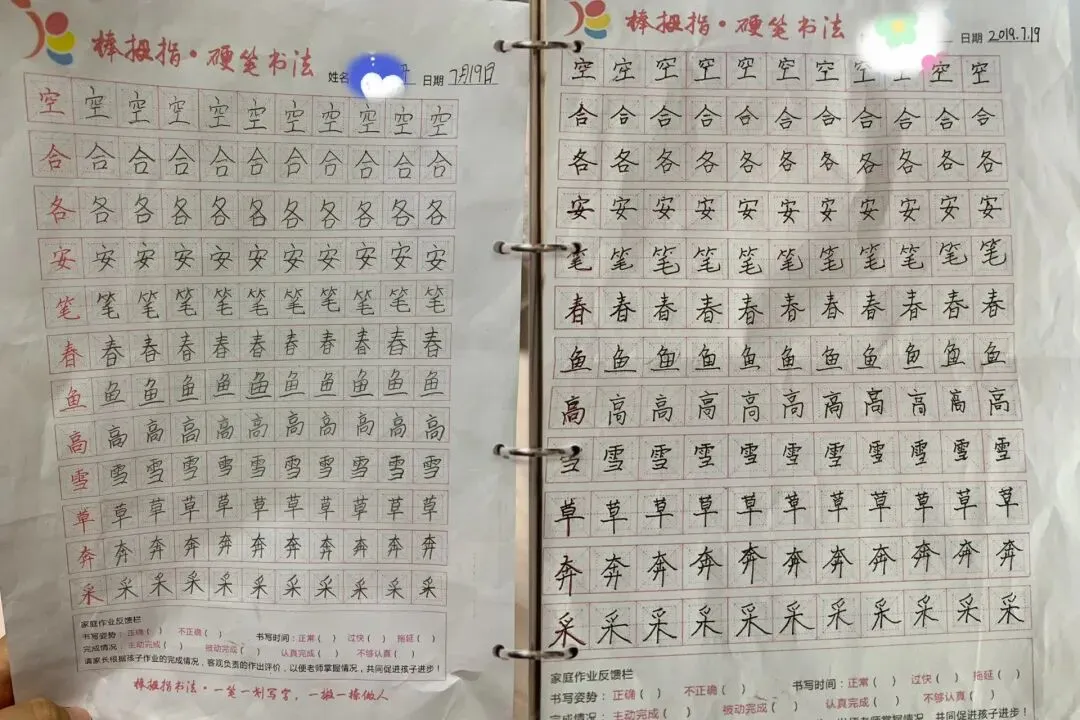 棒扭指·硬笔书法
姓名 日期 7月19日
空 空 空 空 空 空 空 空 空 空 空
合 合 合 合 合 合 合 合 合 合 合
各 各 各 各 各 各 各 各 各 各 各
安 安 安 安 安 安 安 安 安 安 安
笔 笔 笔 笔 笔 笔 笔 笔 笔 笔 笔
春 春 春 春 春 春 春 春 春 春 春
鱼 鱼 鱼 鱼 鱼 鱼 鱼 鱼 鱼 鱼 鱼
高 高 高 高 高 高 高 高 高 高 高
雪 雪 雪 雪 雪 雪 雪 雪 雪 雪 雪
草 草 草 草 草 草 草 草 草 草 草
奔 奔 奔 奔 奔 奔 奔 奔 奔 奔 奔
采 采 采 采 采 采 采 采 采 采 采
家庭作业反馈栏
书写姿势：正确（ ） 不正确（ ） 书写时间：正常（ ） 过快（ ） 拖延（ ）
完成情况：主动完成（ ） 被动完成（ ） 认真完成（ ） 不够认真（ ）
请家长根据孩子作业的完成情况，客观负责的作出评价，以便老师掌握情况，共同促进孩子进步！
棒扭指书法·一笔一划写字，一撇一捺做人
棒扭指·硬笔书法
日期 2019.7.19
空 空 空 空 空 空 空 空 空 空 空
合 合 合 合 合 合 合 合 合 合 合
各 各 各 各 各 各 各 各 各 各 各
安 安 安 安 安 安 安 安 安 安 安
笔 笔 笔 笔 笔 笔 笔 笔 笔 笔 笔
春 春 春 春 春 春 春 春 春 春 春
鱼 鱼 鱼 鱼 鱼 鱼 鱼 鱼 鱼 鱼 鱼
高 高 高 高 高 高 高 高 高 高 高
雪 雪 雪 雪 雪 雪 雪 雪 雪 雪 雪
草 草 草 草 草 草 草 草 草 草 草
奔 奔 奔 奔 奔 奔 奔 奔 奔 奔 奔
采 采 采 采 采 采 采 采 采 采 采
家庭作业反馈栏
书写姿势：正确（ ） 不正确（ ） 书写时间：正常（ ） 过快（ ） 拖延（ ）
完成情况：主动完成（ ） 被动完成（ ） 认真完成（ ） 不够认真（ ）
以便老师掌握情况，共同促进孩子进步！